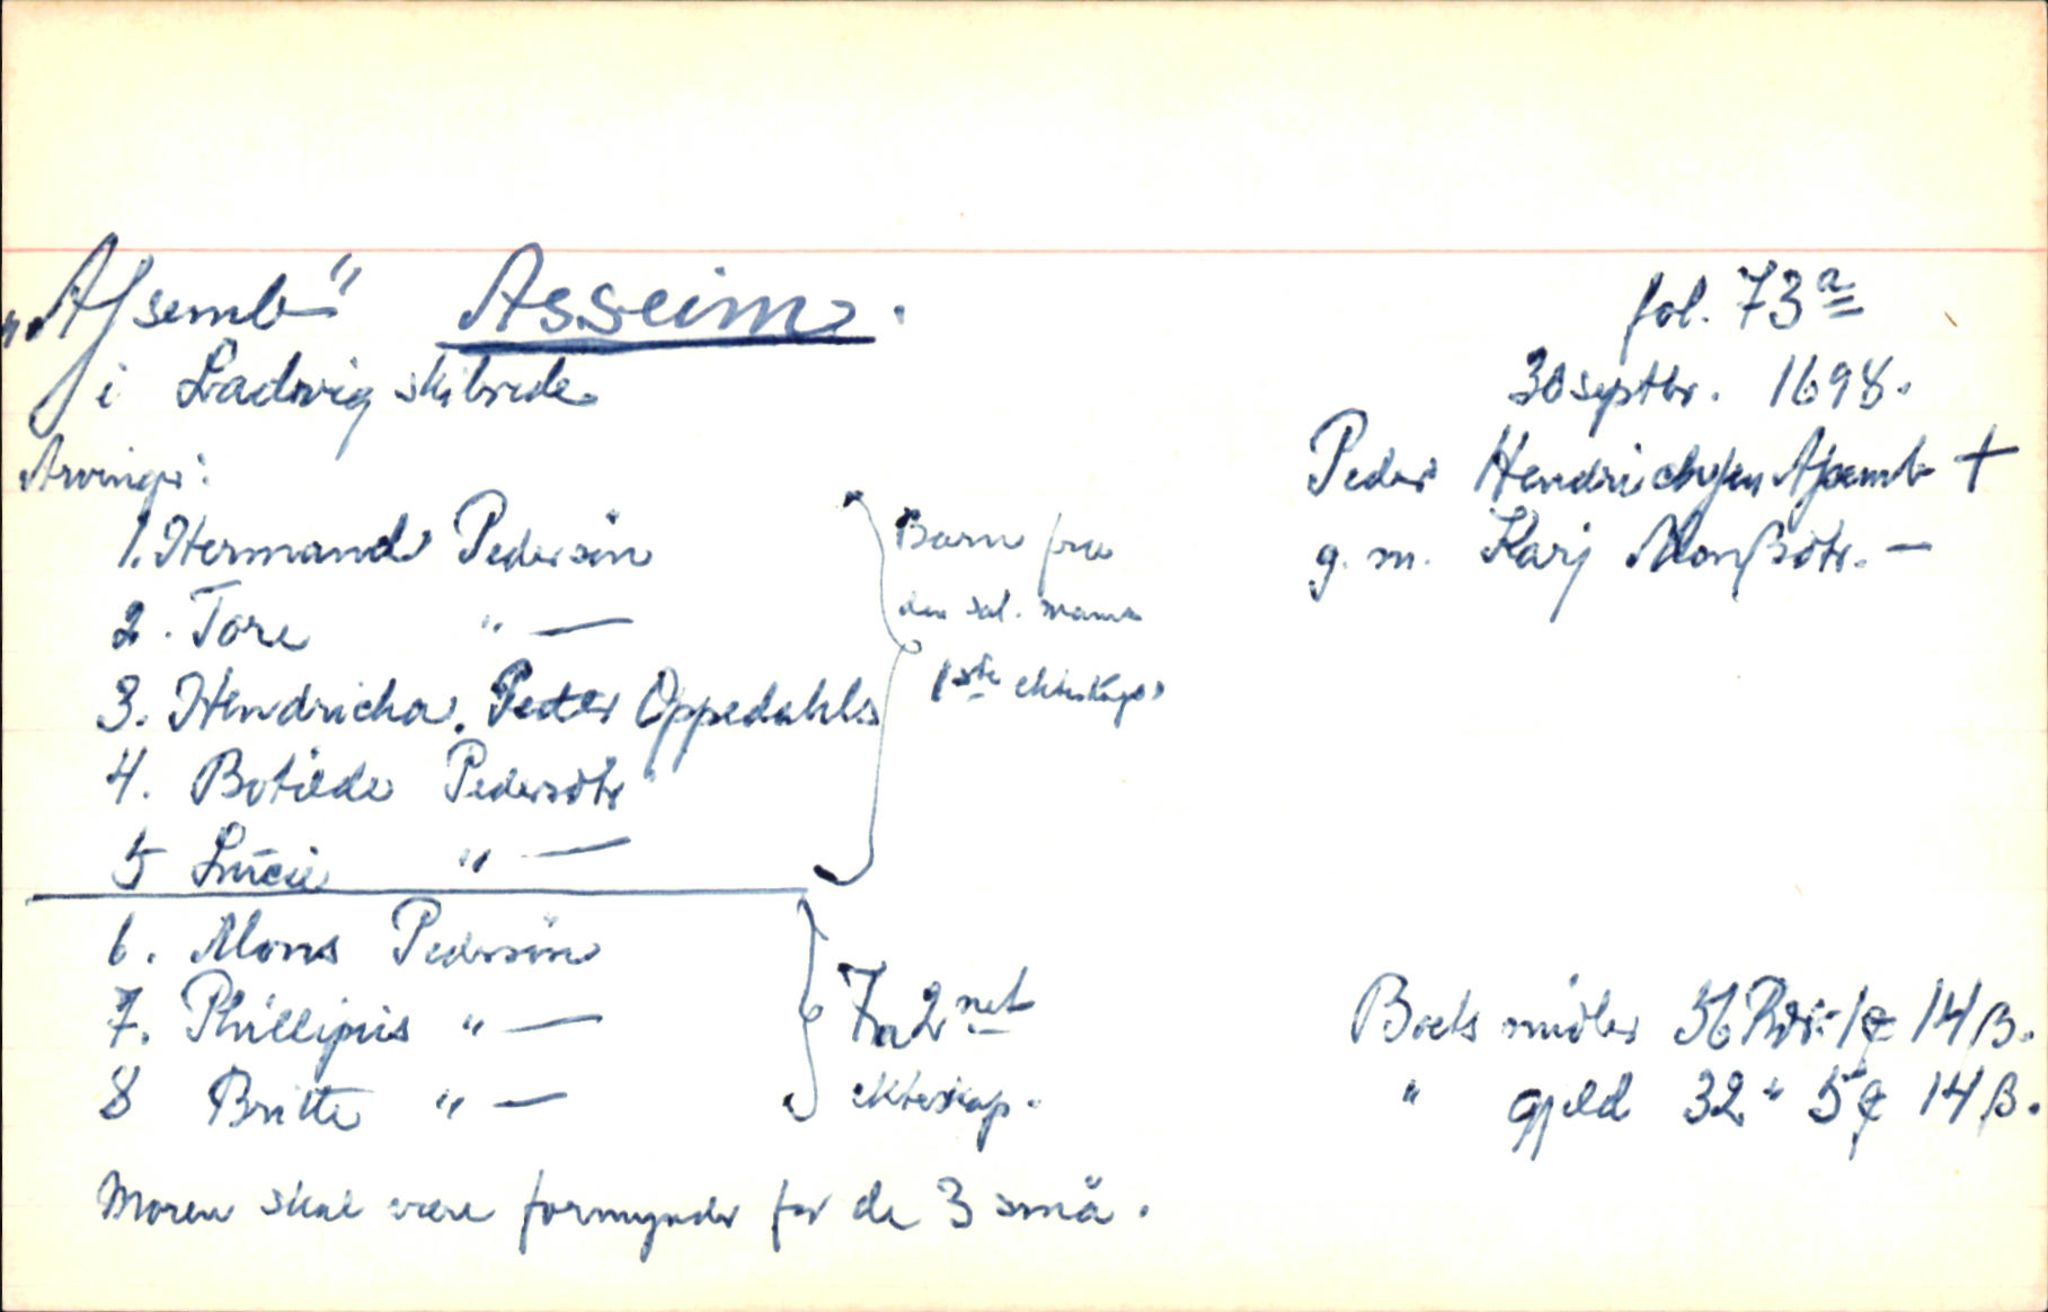 „Assemb" Asseim.
i Ladwig skibrede
fol. 73 a
30 septbr. 1698.
Peder Hendrichsen Assemb +
g. m. Karj Monßdtr. —
Arvinger:
1. Hermand Pedersön
2. Tore " —
3. Hendricha. Peder Oppedahls
4. Botilde Pedersdtr
5 Lucie " —
Barn fra
den sal. mans
1ste ekteskap
6. Mons Pedersön
7. Phillipus " —
8 Britte " —
Fra 2net
ekteskap.
Boets midler 36 Rdr. 1 ₡ 14 β.
" gjeld 32 " 5 ₡ 14 β.
Moren skal være formynder for de 3 små.